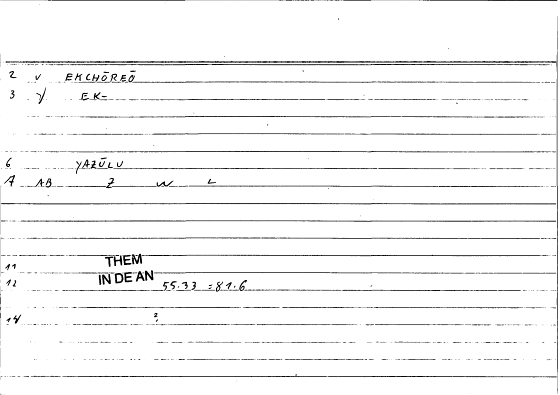 2 v EKCHŌREŌ
3 EK-
6 YAZŪLU
A AB Z W L
11
THEM
IN DE AN
12 55.33 = 81.6
14 ?